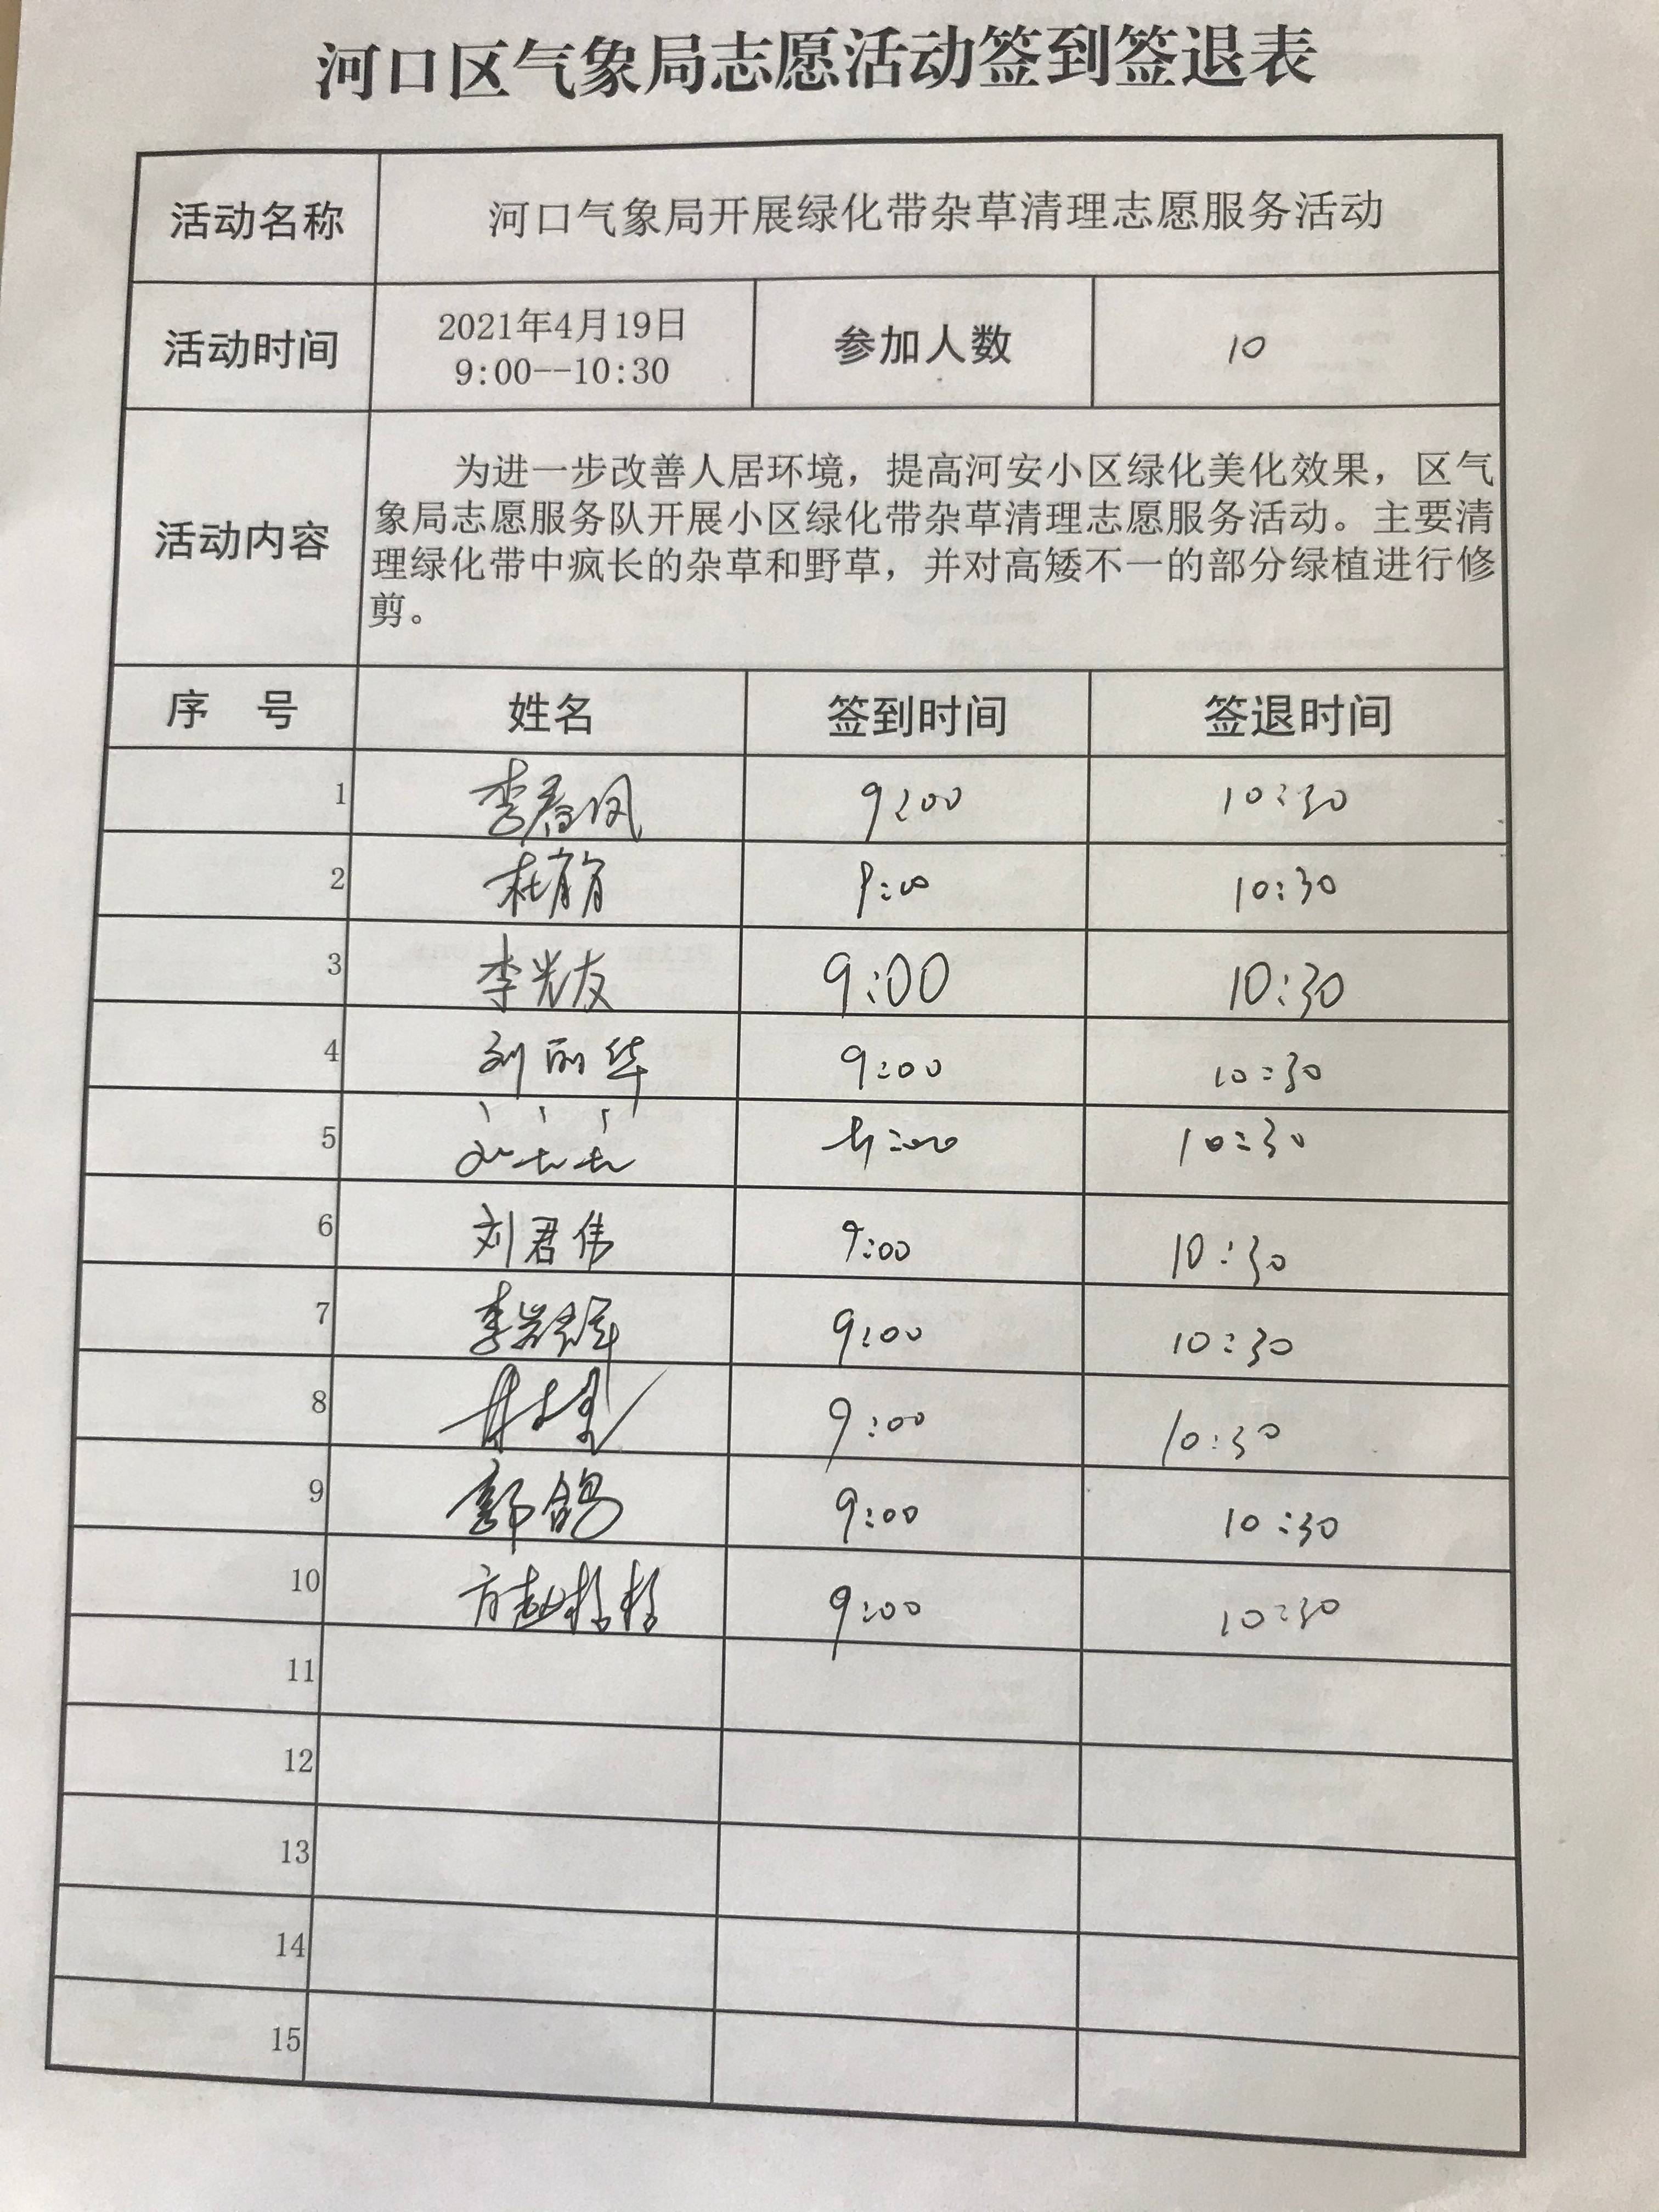 河口区气象局志愿活动签到签退表
活动名称 河口气象局开展绿化带杂草清理志愿服务活动
活动时间 2021年4月19日
9:00--10:30 参加人数 10
活动内容 为进一步改善人居环境，提高河安小区绿化美化效果，区气
象局志愿服务队开展小区绿化带杂草清理志愿服务活动。主要清
理绿化带中疯长的杂草和野草，并对高矮不一的部分绿植进行修
剪。
序 号 姓名 签到时间 签退时间
1 李春凤 9:00 10:30
2 9:00 10:30
3 李光友 9:00 10:30
4 刘丽华 9:00 10:30
5 10:30
6 刘君伟 9:00 10:30
7 9:00 10:30
8 9:00 10:30
9 郭鸽 9:00 10:30
10 9:00 10:30
11
12
13
14
15